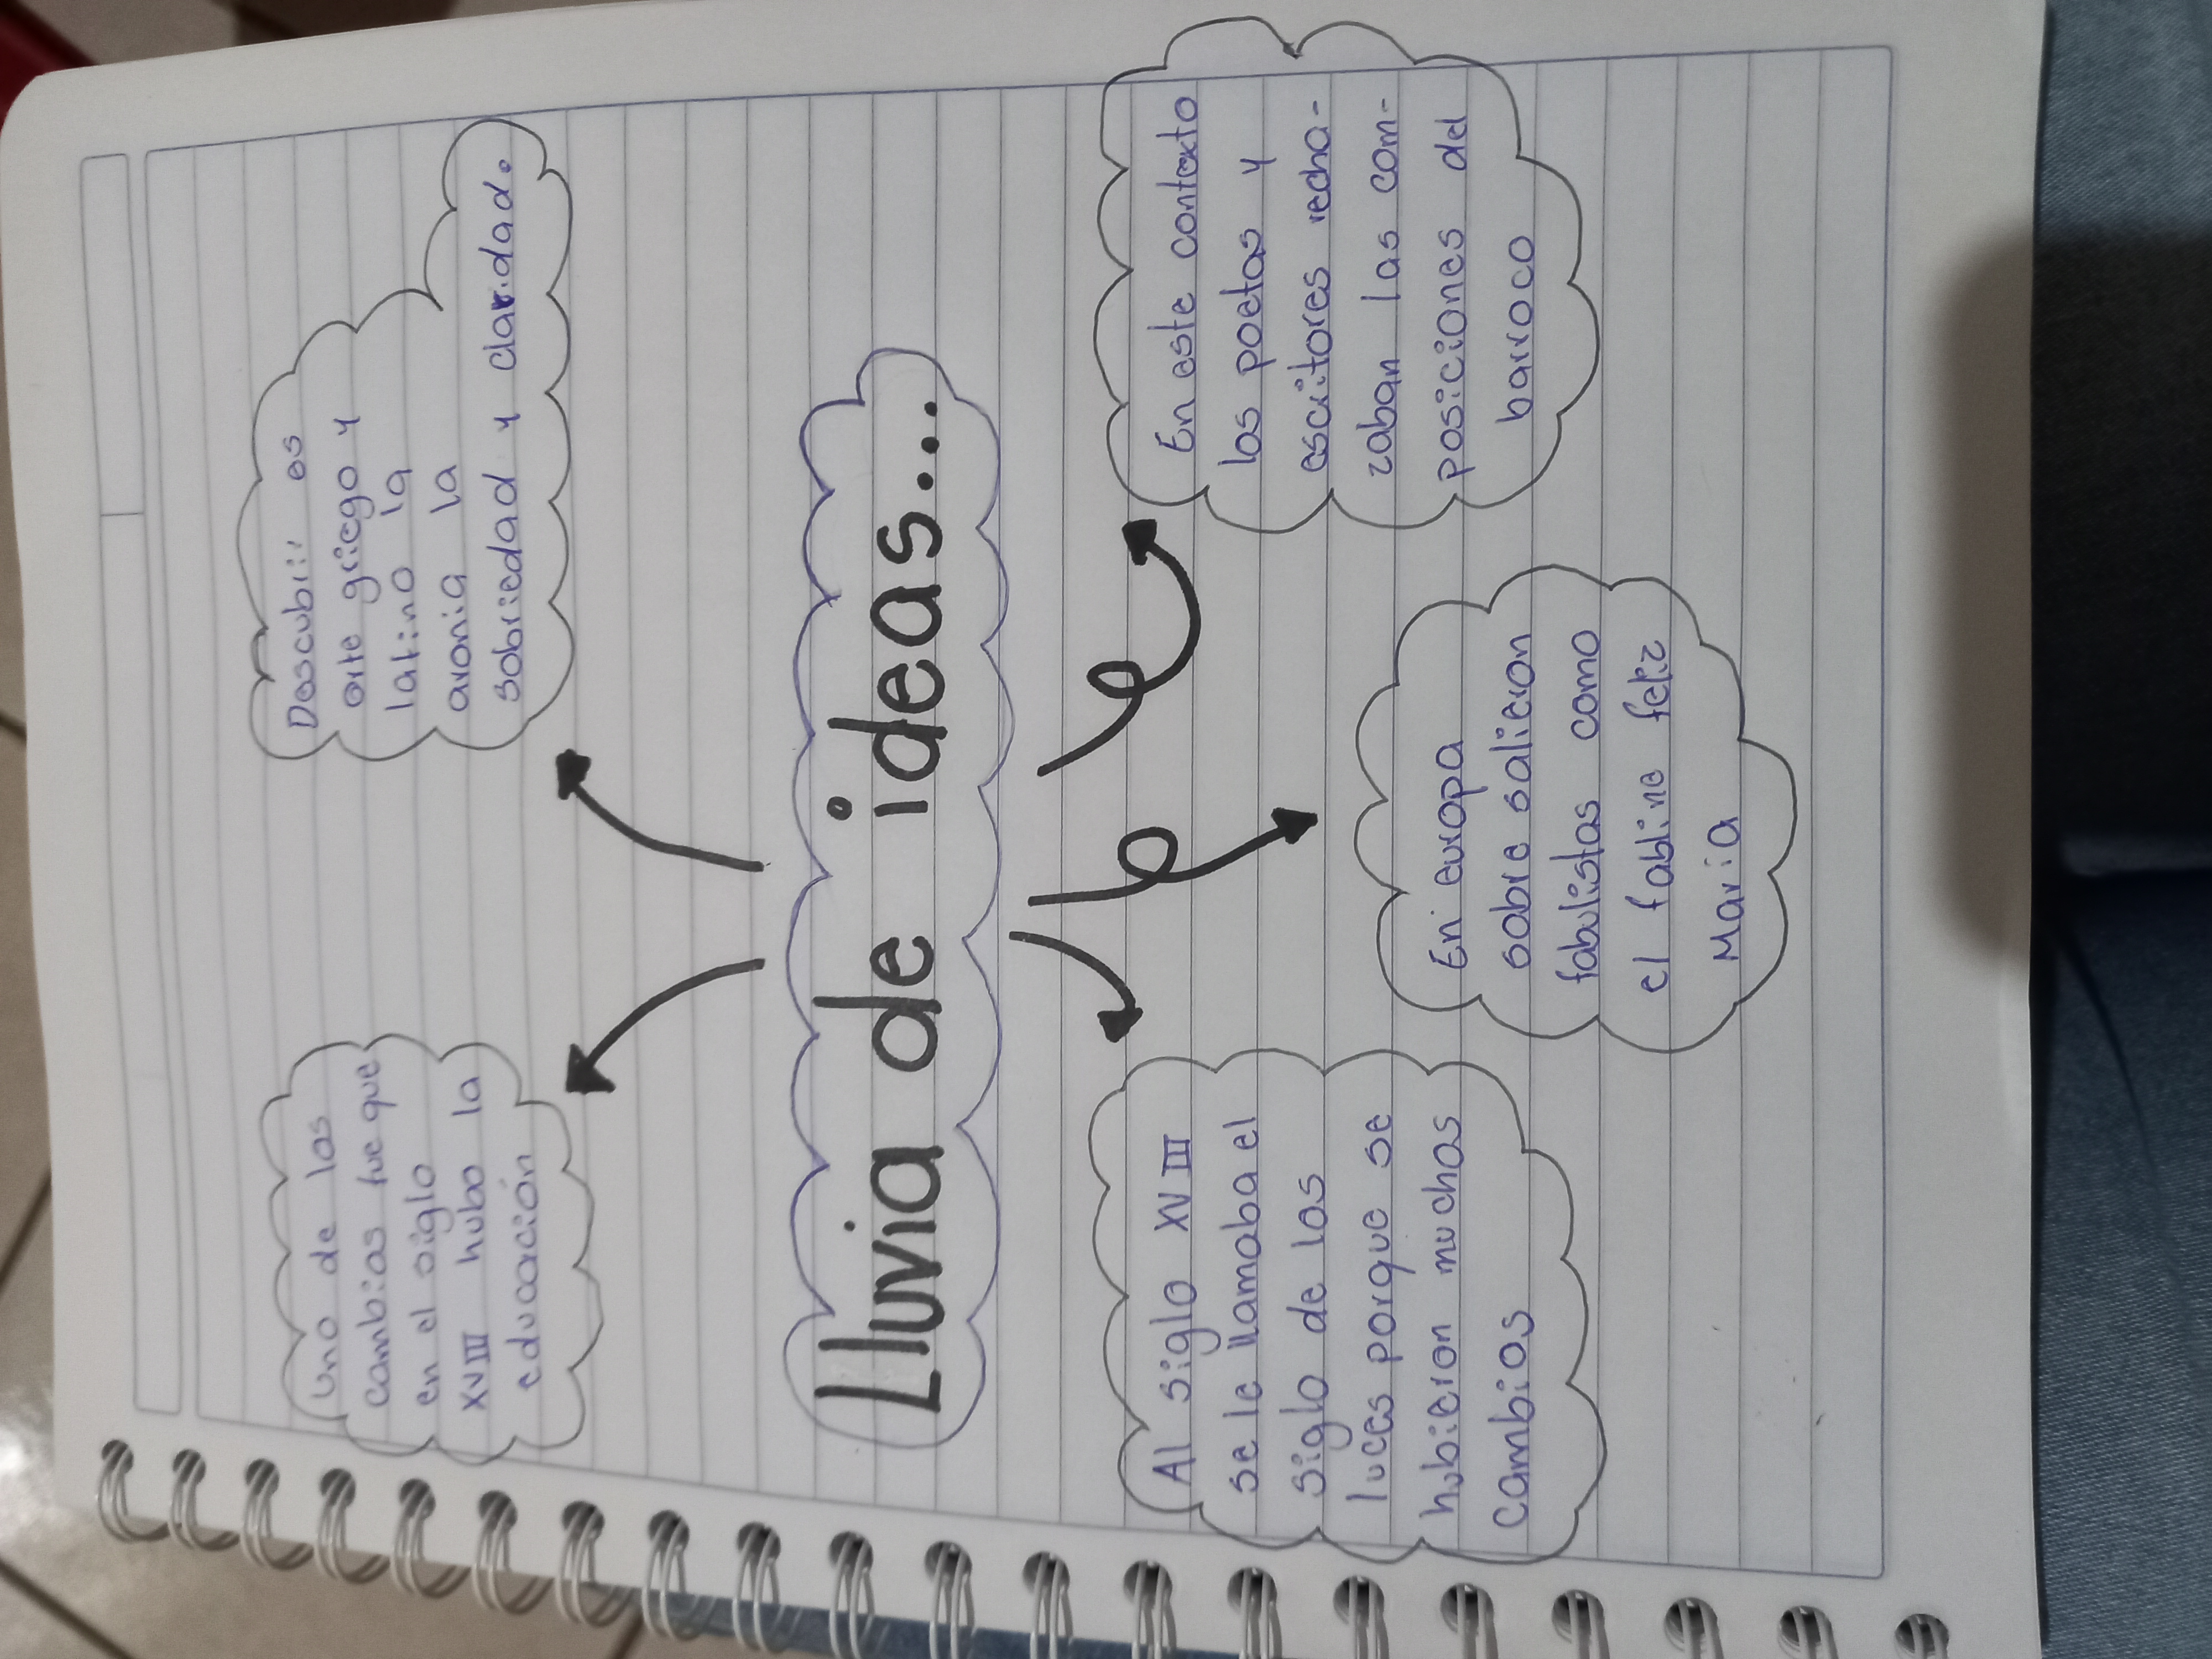 Uno de los
cambios fue que
en el siglo
XVIII hubo la
educación
Descubrir es
arte griego y
latino la
aronia la
sobriedad y claridad.
Lluvia de ideas...
Al siglo XVIII
se le llamaba el
siglo de las
luces porque se
hubieron muchos
cambios
En europa
sobre salieron
fabulistas como
el fabline feliz
Maria
En este contexto
los poetas y
escritores recha-
zaban las com-
posiciones del
barroco